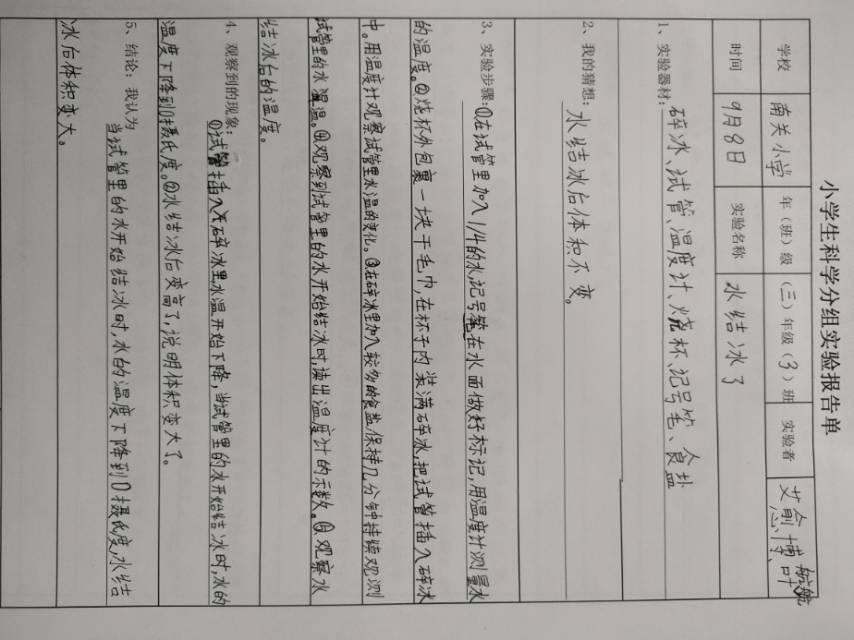 小学生科学分组实验报告单
学校 南关小学 年（班）级 （三）年级（3）班 实验者
时间 9月8日 实验名称 水结冰了
1、实验器材：
碎冰、试管、温度计、烧杯、记号笔、食盐
2、我的猜想：
水结冰后体积不变。
3、实验步骤：①在试管里加入1/4的水,记号笔在水面做好标记,用温度计测量水
的温度。②烧杯外包裹一块干毛巾,在杯子内装满碎冰,把试管插入碎冰
中。用温度计观察试管里水温的变化。③在碎冰里加入较多的食盐,保持几分钟持续观测
试管里的水温。④观察到试管里的水开始结冰时,读出温度计的示数。⑤观察水
结冰后的温度。
4、观察到的现象：
①试管插入碎冰里水温开始下降,当试管里的水开始结冰时,水的
温度下降到0摄氏度。②水结冰后变高了,说明体积变大了。
5、结论：我认为
当试管里的水开始结冰时,水的温度下降到0摄氏度,水结
冰后体积变大。